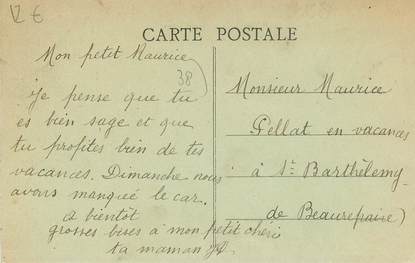 12 €
CARTE POSTALE
Mon petit Maurice
38
Je pense que tu
es bien sage et que
tu profites bien de tes
vacances. Dimanche nous
avons manqué le car.
à bientôt
grosses bises à mon petit chéri
ta maman
Monsieur Maurice
Pellat en vacances
à St Barthélemy
de Beaurepaire)